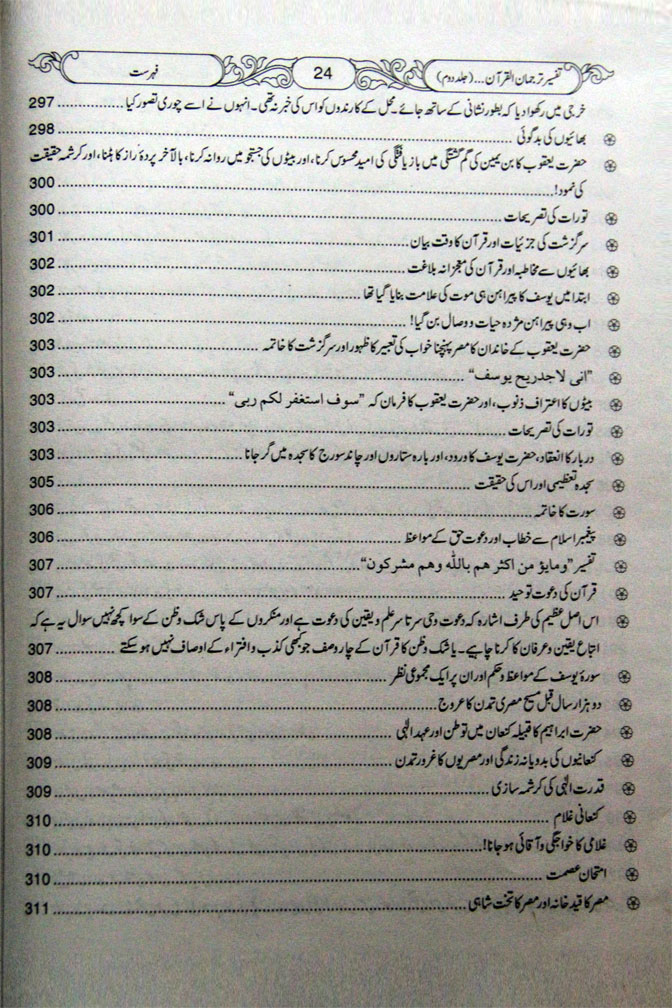 تفسیر ترجمان القرآن...(جلد دوم) 24 فہرست
خرجی میں رکھوا دیا کہ بطور نشانی کے ساتھ جائے۔ محل کے کارندوں کو اس کی خبر نہ تھی۔ انہوں نے اسے چوری تصور کیا ........ 297
بھائیوں کی بدگوئی ........ 298
حضرت یعقوب کا بن یمین کی گم گشتگی میں بازیافتگی کی امید محسوس کرنا، اور بیٹوں کی جستجو میں روانہ کرنا، بالآخر پردۂ راز کا ہٹنا، اور کرشمہ حقیقت
کی نمود! ........ 300
تورات کی تصریحات ........ 300
سرگزشت کی جزئیات اور قرآن کا وقت بیان ........ 301
بھائیوں سے مخاطبہ اور قرآن کی معجزانہ بلاغت ........ 302
ابتدا میں یوسف کا پیراہن ہی موت کی علامت بنایا گیا تھا ........ 302
اب وہی پیراہن مژدہ حیات و وصال بن گیا! ........ 302
حضرت یعقوب کے خاندان کا مصر پہنچنا خواب کی تعبیر کا ظہور اور سرگزشت کا خاتمہ ........ 303
”انی لاجدریح یوسف“ ........ 303
بیٹوں کا اعتراف ذنوب، اور حضرت یعقوب کا فرمان کہ ”سوف استغفر لکم ربی“ ........ 303
تورات کی تصریحات ........ 303
دربار کا انعقاد، حضرت یوسف کا ورود، اور بارہ ستاروں اور چاند سورج کا سجدہ میں گر جانا ........ 303
سجدہ تعظیمی اور اس کی حقیقت ........ 305
سورت کا خاتمہ ........ 306
پیغمبر اسلام سے خطاب اور دعوت حق کے مواعظ ........ 306
تفسیر ”ومایؤ من اکثر هم باللّٰه وهم مشركون“ ........ 307
قرآن کی دعوت توحید ........ 307
اس اصل عظیم کی طرف اشارہ کہ دعوت وحی سرتا سر علم و یقین کی دعوت ہے اور منکروں کے پاس شک و ظن کے سوا کچھ نہیں سوال یہ ہے کہ
اتباع یقین و عرفان کا کرنا چاہیے۔ یا شک و ظن کا قرآن کے چار وصف جو کبھی کذب و افتراء کے اوصاف نہیں ہو سکتے ........ 307
سورۂ یوسف کے مواعظ و حکم اور ان پر ایک مجموعی نظر ........ 308
دو ہزار سال قبل مسیح مصری تمدن کا عروج ........ 308
حضرت ابراہیم کا قبیلہ کنعان میں توطن اور عہد الٰہی ........ 308
کنعانیوں کی بدویانہ زندگی اور مصریوں کا غرور تمدن ........ 309
قدرت الٰہی کی کرشمہ سازی ........ 309
کنعانی غلام ........ 310
غلامی کا خواجگی و آقائی ہو جانا! ........ 310
امتحان عصمت ........ 310
مصر کا قید خانہ اور مصر کا تخت شاہی ........ 311